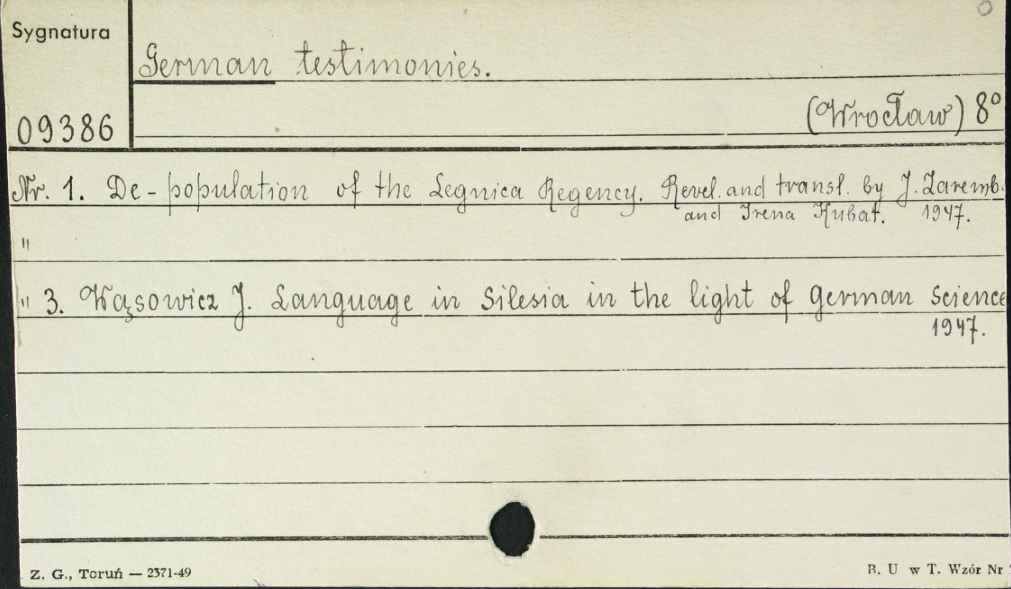 Sygnatura
German testimonies.
09386
(Wrocław) 8°
Nr. 1. De-population of the Legnica Regency. Revel. and transl. by J. Zaremb.
and Irena Kubat. 1947.
"
" 3. Wąsowicz J. Language in Silesia in the light of German Science
1947.
Z. G., Toruń — 2371-49
B. U w T. Wzór Nr